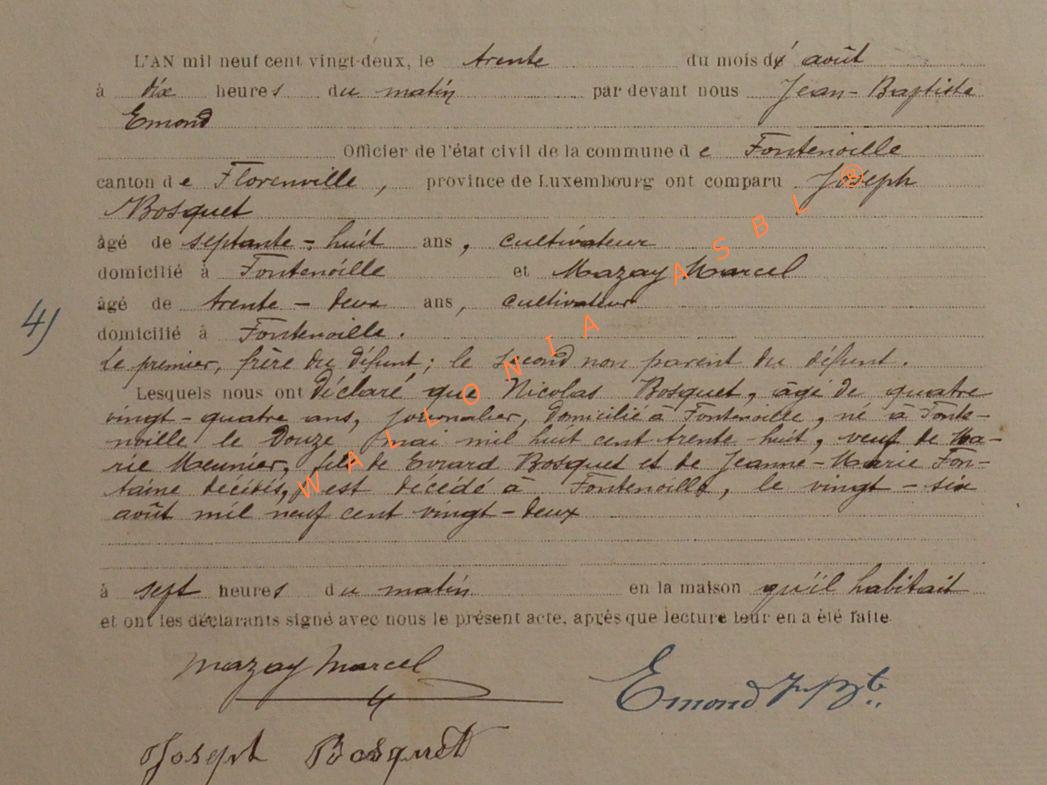 L'AN mil neuf cent vingt-deux, le trente du mois d' août
à dix heures du matin par devant nous Jean-Baptiste
Emond
Officier de l'état civil de la commune de Fontenoille
canton de Florenville, province de Luxembourg ont comparu Joseph
Bosquet
âgé de septante-huit ans, cultivateur
domicilié à Fontenoille et Mazay Marcel
âgé de trente-deux ans, cultivateur
domicilié à Fontenoille.
4)
Le premier, frère du défunt; le second non parent du défunt.
Lesquels nous ont déclaré que Nicolas Bosquet, âgé de quatre
vingt-quatre ans, journalier, domicilié à Fontenoille, né à Fonte-
noille le douze mai mil huit cent trente-huit, veuf de Ma-
rie Meunier, fils de Evrard Bosquet et de Jeanne-Marie Fon-
taine décédés, est décédé à Fontenoille, le vingt-six
août mil neuf cent vingt-deux
à sept heures du matin en la maison qu'il habitait
et ont les déclarants signé avec nous le présent acte, après que lecture leur en a été faite.
Mazay Marcel
Emond J. Bte
Joseph Bosquet
WALLONIA ASBL ®